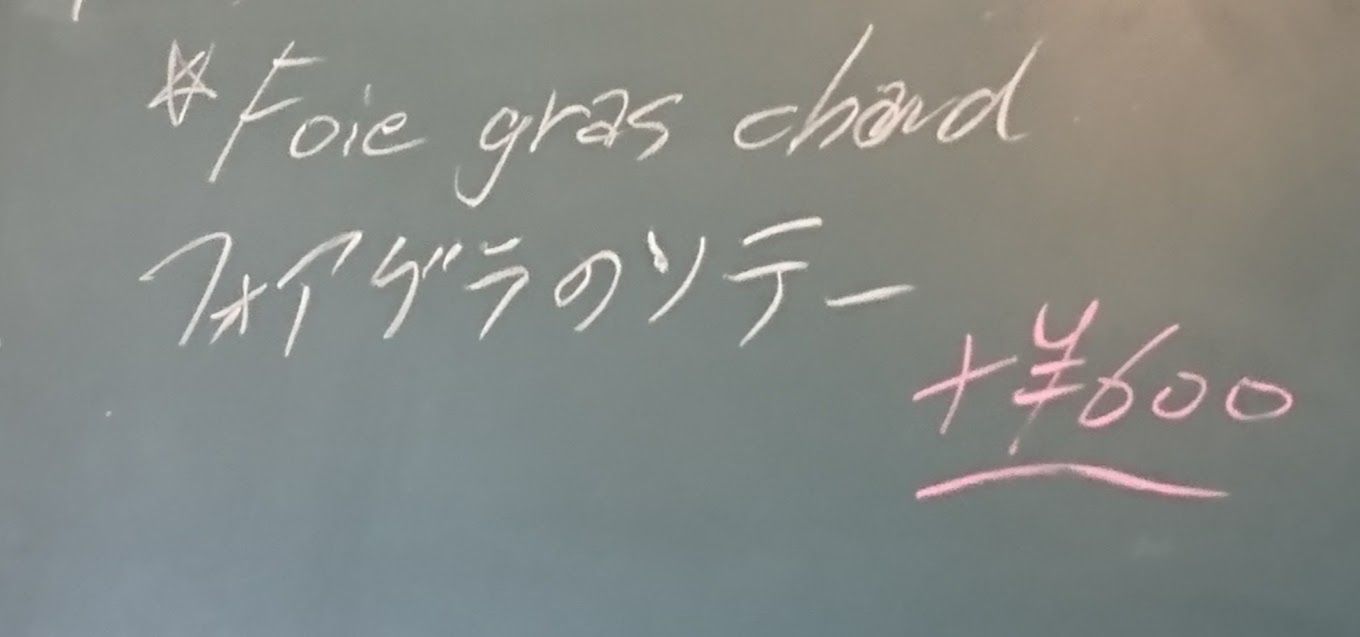 ☆Foie gras chaud
フォアグラのソテー
+¥600